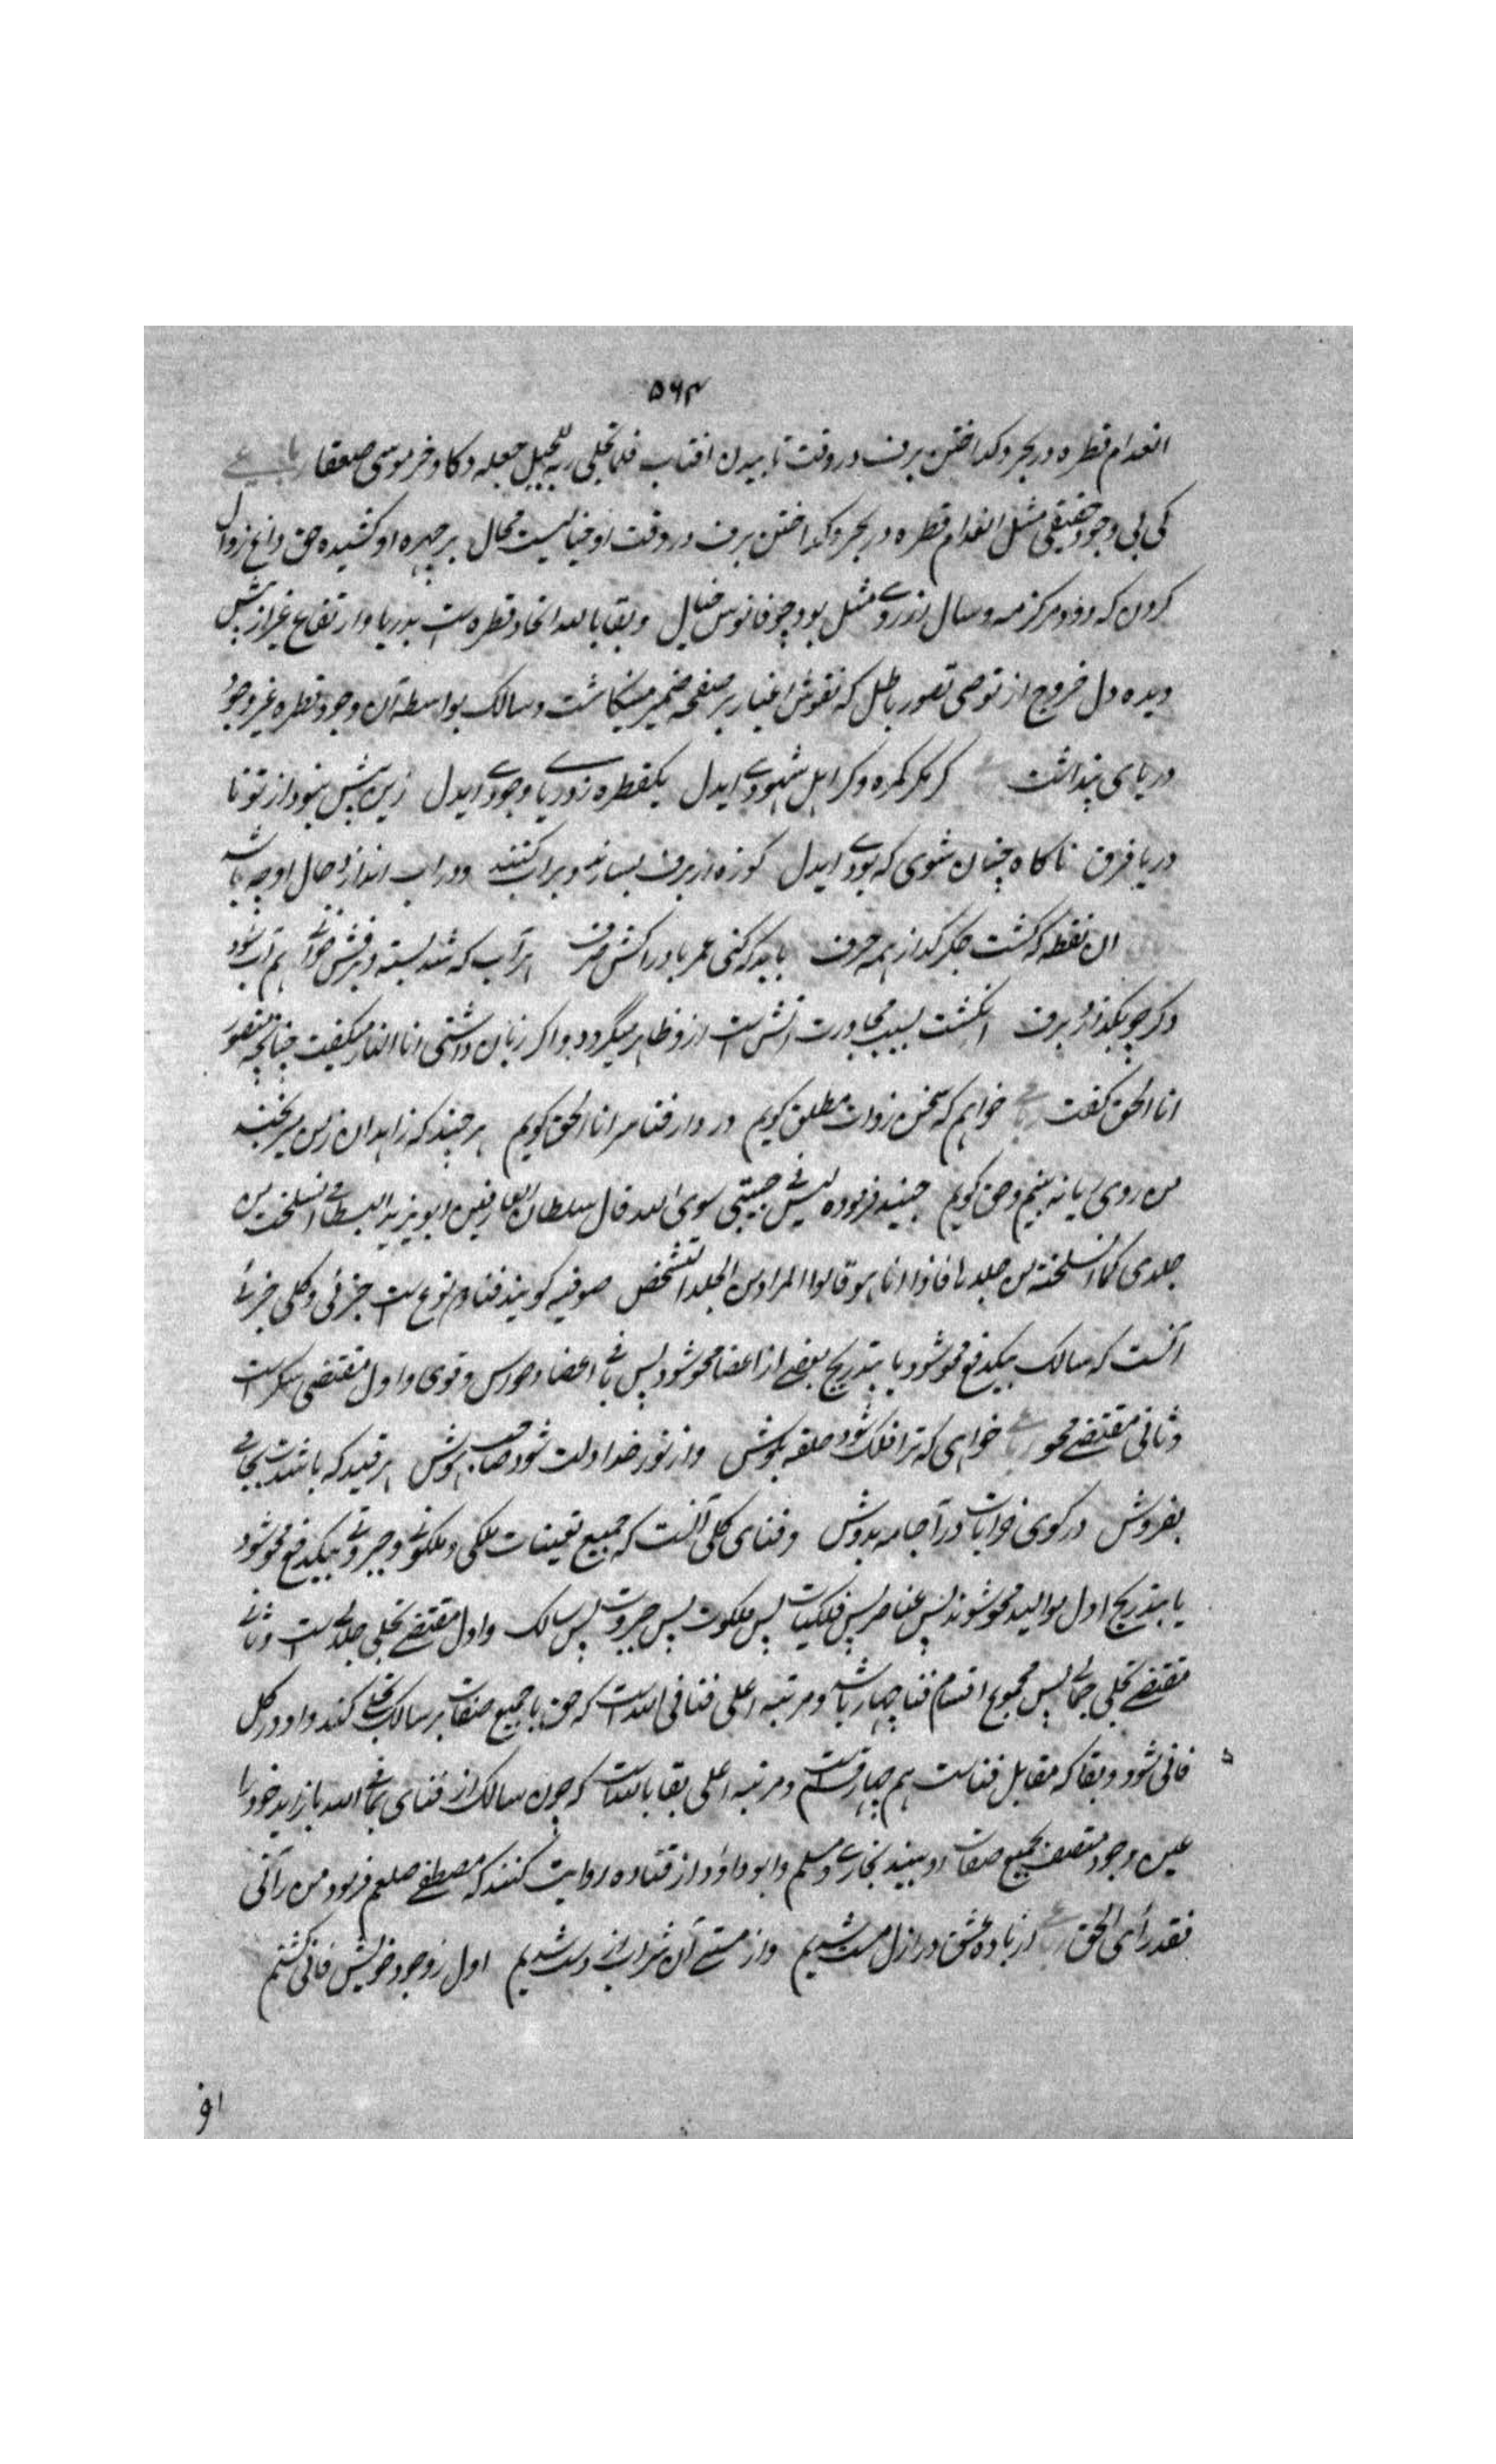 ۵۶۴
انعدام قطره در بحر و کداختن برف در وقت تابیدن افتاب فلما تجلی ربه للجبل جعله دکا و خر موسی صعقا رباعی
کی بی وجود حقیقی مثل انعدام قطره در بحر و کداختن برف در وقت او خیالیست محال بر چهره او کشیده حق داغ زوال
کردن که درو مرکز مه و سال بود چو فانوس خیال و بقا بالله اتحاد قطره است بدریا و ارتفاع غیر از پیش
دیده دل خروج از تصور باطل که نقوش اغیار بر صفحه ضمیر مینکاشت و سالک بواسطه آن وجود قطره غیر وجود
دریا می پنداشت کر منکر کمره و کر اهل شهودی ایدل یکقطره ز دریا وجودی ایدل زین پیش نبود از تو تا
دریا فرق ناکاه چنان شوی که بودی ایدل کوزه از برف بسازند و پر اب کنند و در اب اندازند حال او چه باشد
ان نقطه که کشت جلوه‌کر از همه حرف باید که کنی عمر بادراکش صرف هر آب که شد بسته و برفش خوانی هم آب شود
اکر چو بکدازد برف انکشت بسبب مجاورت آتش است ازو ظاهر میکردد و اکر زبان داشتی انا النار میکفت چنانچه منصور
انا الحق کفت رباعی خواهم که سخن ز ذات مطلق کویم در دار فنا سر انا الحق کویم هر چند که زاهدان ز من میرنجند
من روی ریا نه بینم و حق کویم جنید فرموده لیس فی جبتی سوی الله قال سلطان العارفین ابو یزید البسطامی انسلخت من
جلدی کما انسلخت من جلدها فاذا انا هو قالوا المراد من الجلد التشخص صوفیه کویند فنا دو نوع است جزئی و کلی جزئی
آنست که سالک بیکدفع محو شود یا بتدریج بعضی از اعضا محو شود پس باقی اعضا و حواس و قوی و اول مقتضی سکر است
و ثانی مقتضی محو رباعی خواهی که ترا فلک شود حلقه بکوش و از نور خدا دلت شود صاحب هوش هر قید که باشدت بجامی
بفروش در کوی خرابات درآ جامه بدوش و فنای کلی آنست که جمیع تعینات ملکی و ملکوتی و جبروتی بیکدفع محو شود
یا بتدریج اول موالید محو شوند پس عناصر پس فلکیات پس ملکوت پس جبروت پس سالک و اول مقتضی تجلی جلالیست و ثانی
مقتضی تجلی جمالی پس مجموع اقسام فنا چهار باشد و مرتبه اعلی فنا فی الله است که حق با جمیع صفات بر سالک تجلی کند و او در کل
فانی شود و بقا که مقابل فناست هم چهار قسم است و مرتبه اعلی بقا بالله است که چون سالک از فنای فی الله باز اید خود را
عین وجود متصف بجمیع صفات او بیند بخاری و مسلم و ابو داود از قتاده روایت کنند که مصطفی صلعم فرمود من رآنی
فقد رأی الحق رباعی از باده عشق در ازل مست شدیم و از مستی آن شراب از دست شدیم اول ز وجود خویش فانی کشتم